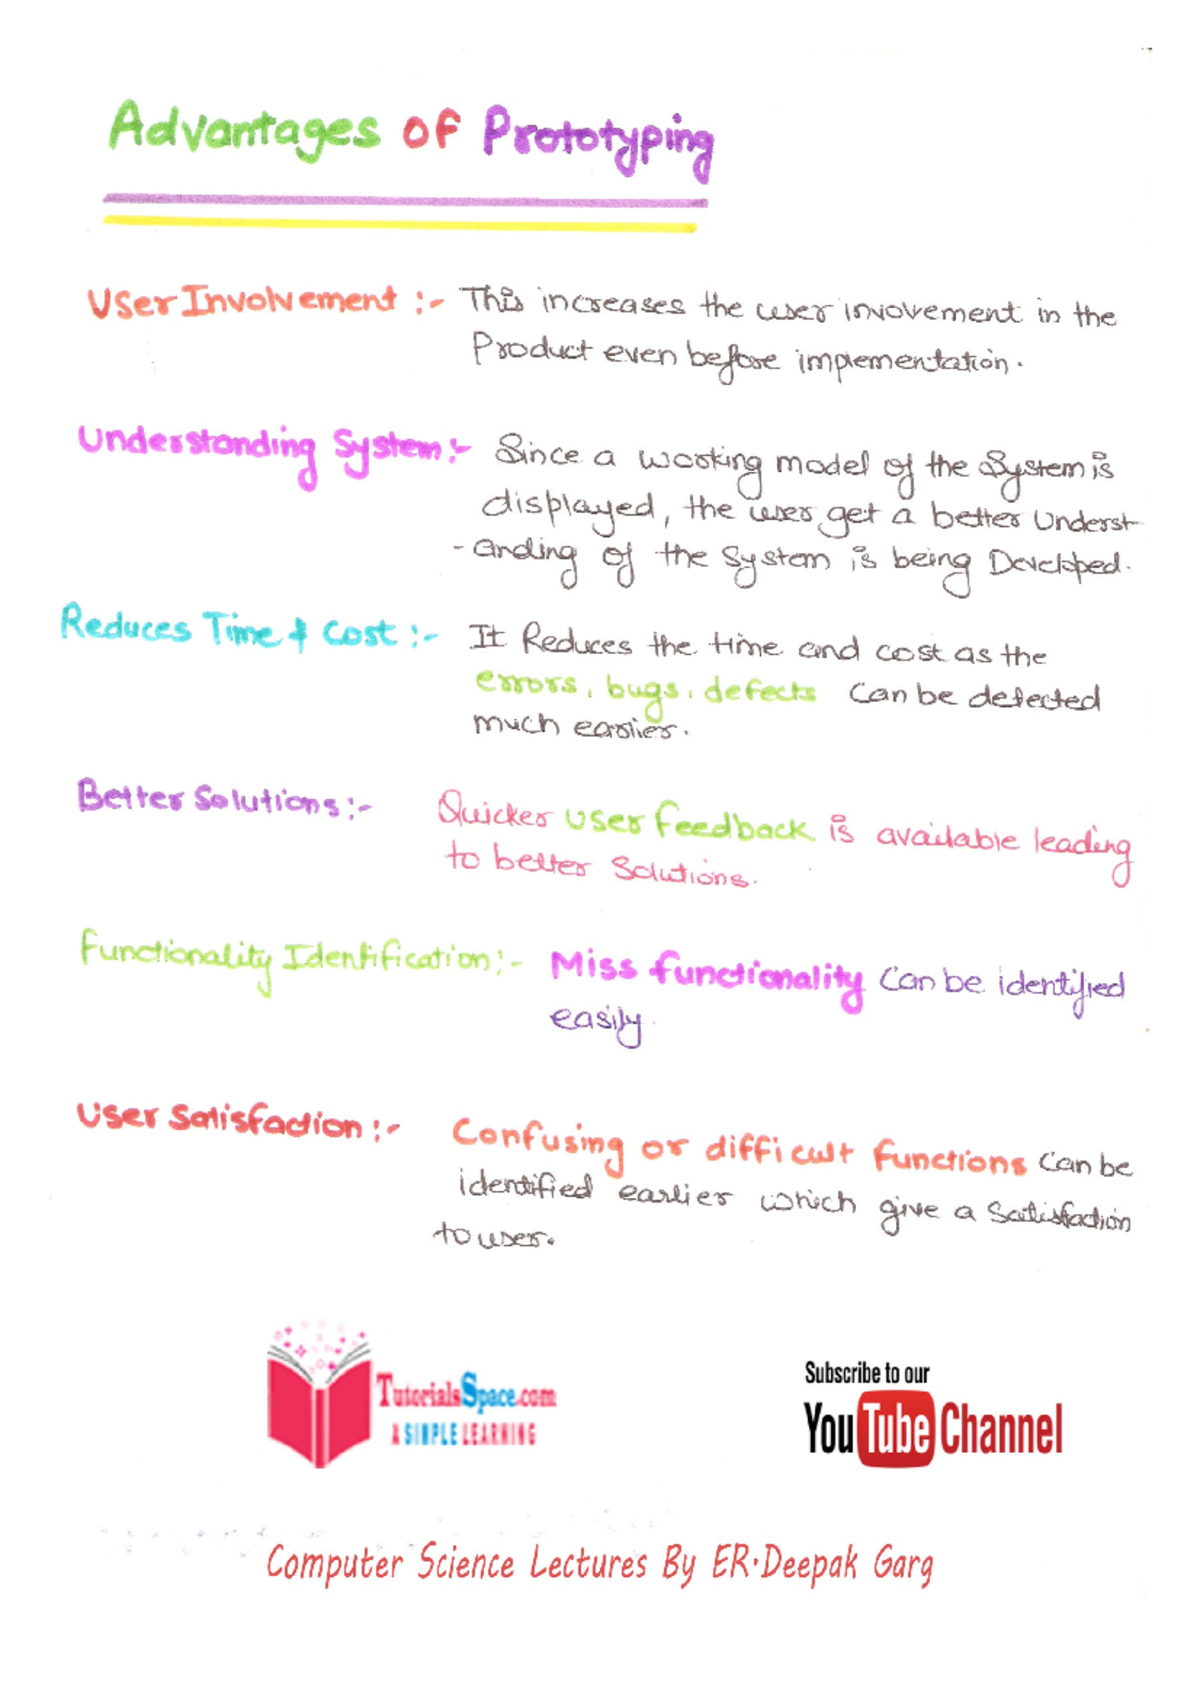 Advantages of Prototyping
User Involvement :- This increases the user involvement in the
Product even before implementation.
Understanding System :- Since a working model of the System is
displayed, the user get a better Underst-
-anding of the System is being Developed.
Reduces Time & Cost :- It Reduces the time and cost as the
errors, bugs, defects can be detected
much easlier.
Better Solutions :- Quicker user feedback is available leading
to better Solutions.
Functionality Identification :- Miss functionality can be identified
easily.
User Satisfaction :- Confusing or difficult functions can be
identified earlier which give a Satisfaction
to user.
TutorialsSpace.com
A SIMPLE LEARNING
Subscribe to our
YouTube Channel
Computer Science Lectures By ER.Deepak Garg